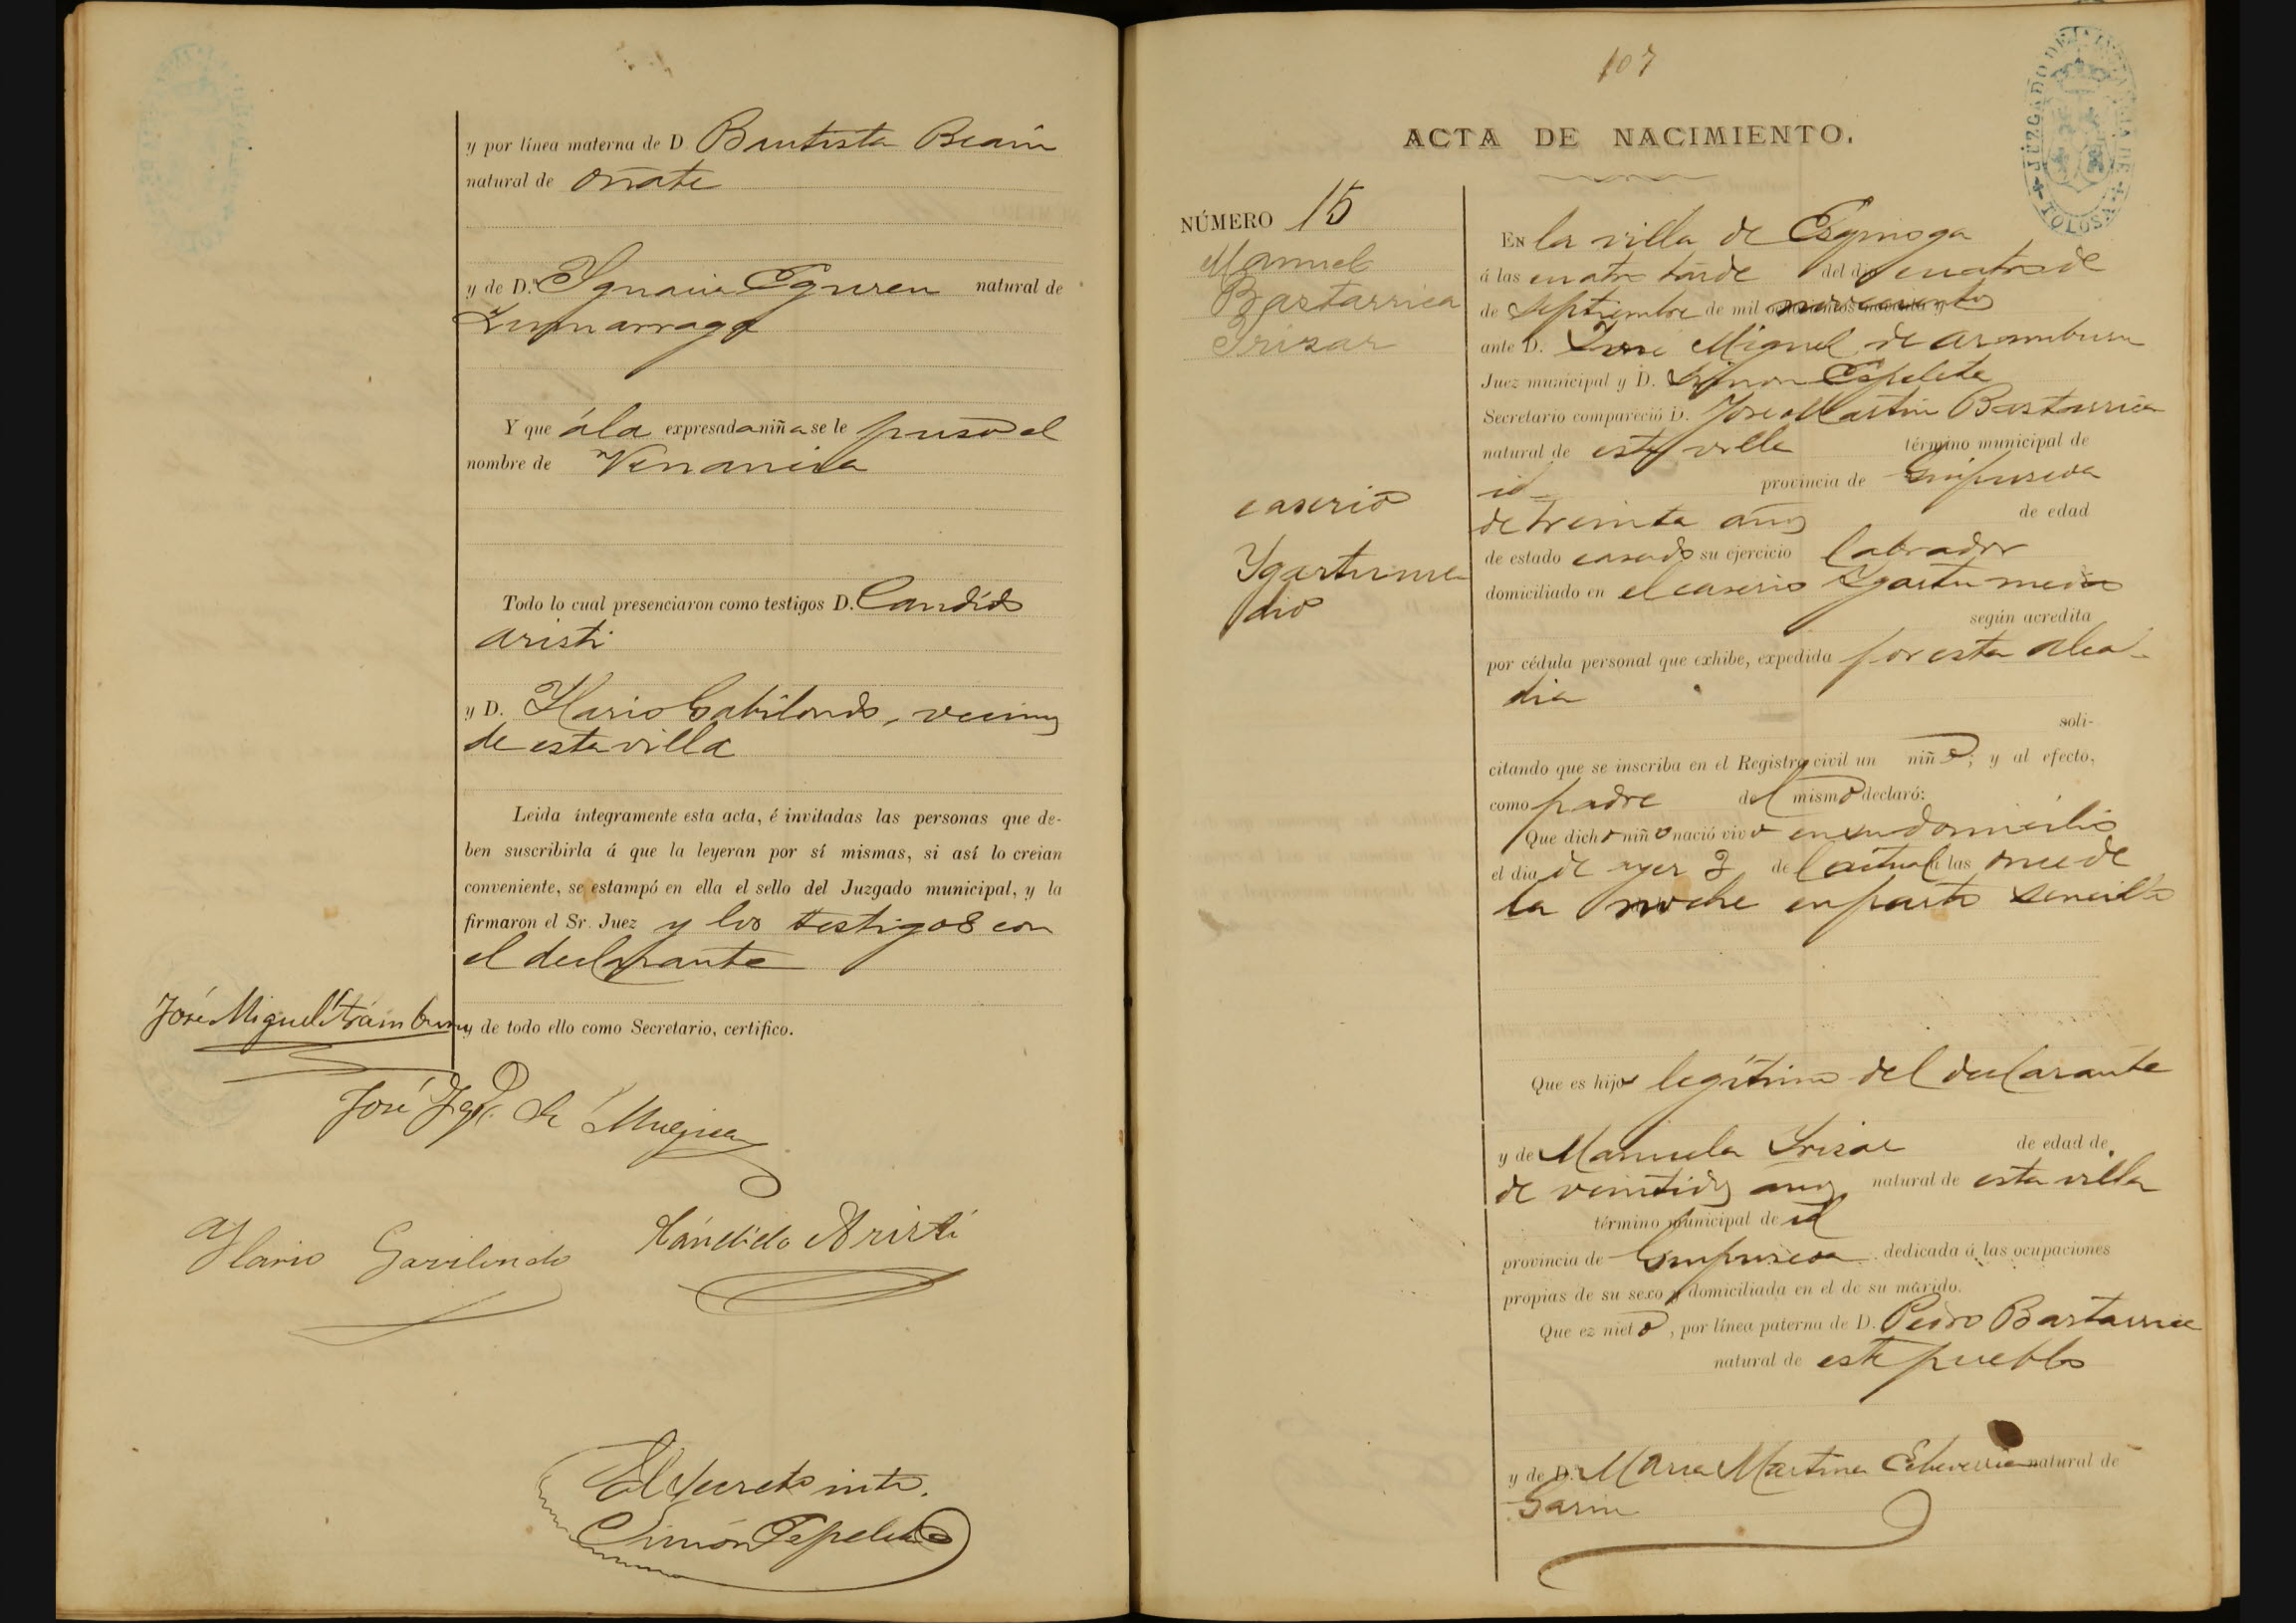 y por línea materna de D. Bautista Beain
natural de Oñate
y de D.ª Ygnacia Eguren natural de
Zumarraga
Y que á la expresada niña se le puso el
nombre de Venancia
Todo lo cual presenciaron como testigos D. Candido
Aristi
y D. Ylario Gabilondo, vecinos
de esta villa
Leida íntegramente esta acta, é invitadas las personas que de-
ben suscribirla á que la leyeran por sí mismas, si así lo creian
conveniente, se estampó en ella el sello del Juzgado municipal, y la
firmaron el Sr. Juez y los testigos con
el declarante
José Miguel Aramburu y de todo ello como Secretario, certifico.
José Ygº. de
Ylario Gavilondo Cándido Aristi
El Secretº intº.
Simón Espeleta
107
JUZGADO DE TOLOSA
ACTA DE NACIMIENTO.
NÚMERO 15
Manuel
Bastarrica
Irizar
caserio
Ygartume
dio
En la villa de Ezquioga
á las cuatro tarde del dia cuatro de
de Septiembre de mil novecientos
ante D. Jose Miguel de Aramburu
Juez municipal y D. Simon Espeleta
Secretario compareció D. Jose Martin Bastarrica
natural de esta villa término municipal de
id provincia de Guipuzcoa
de treinta años de edad
de estado casado su ejercicio labrador
domiciliado en el caserio Ygartumedio
según acredita
por cédula personal que exhibe, expedida por esta alcal-
dia
soli-
citando que se inscriba en el Registro civil un niño; y al efecto,
como padre del mismo declaró:
Que dicho niño nació vivo en su domicilio
el dia de ayer 3 del actual á las once de
la noche en parto sencillo
Que es hijo legítimo del declarante
y de Manuela Yrizar de edad de
de veintidos años natural de esta villa
término municipal de id
provincia de Guipuzcoa dedicada á las ocupaciones
propias de su sexo y domiciliada en el de su márido.
Que ez nieto, por línea paterna de D. Pedro Bastarrica
natural de este pueblo
y de D.ª Maria Martina Echeverria natural de
Garin